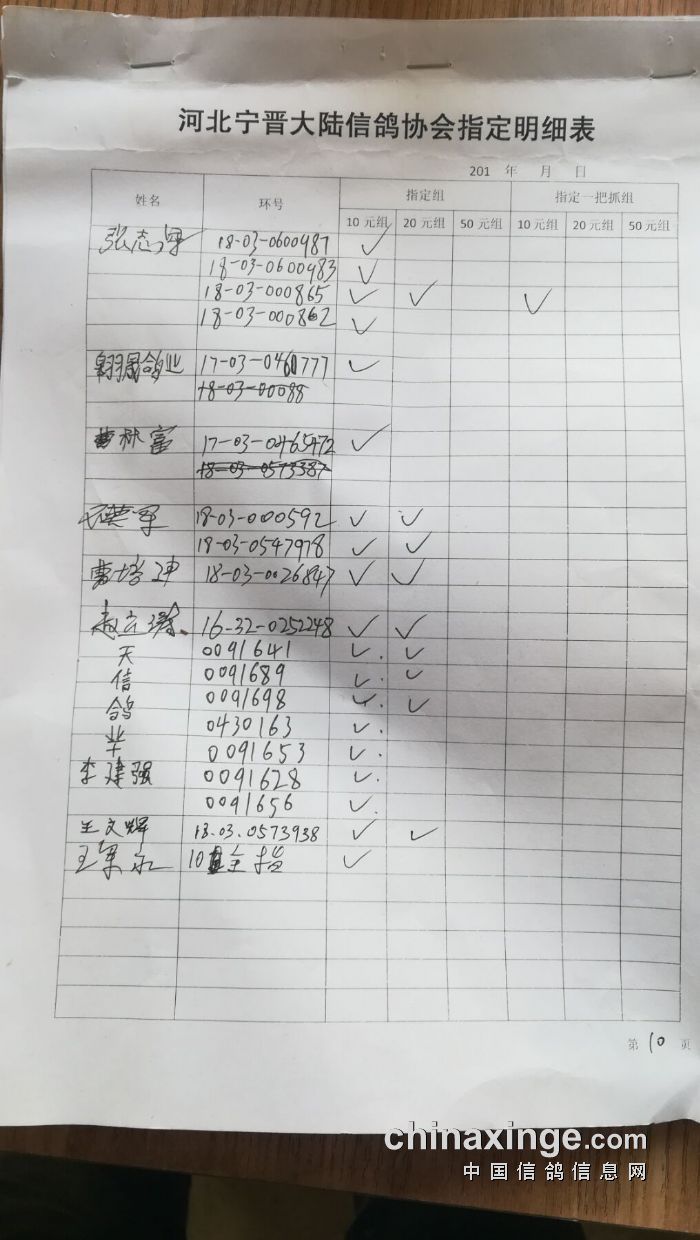 河北宁晋大陆信鸽协会指定明细表
201 年 月 日
姓名 环号 指定组 指定一把抓组
10元组 20元组 50元组 10元组 20元组 50元组
张志 18-03-0600987 ✓
18-03-0600983 ✓
18-03-000865 ✓ ✓ ✓
18-03-000862 ✓
翱属鸽业 17-03-0460777 ✓
18-03-00088
曹林富 17-03-0465472 ✓
18-03-0573387
18-03-000592 ✓ ✓
18-03-0547978 ✓ ✓
曹培坤 18-03-0026847 ✓ ✓
赵立 16-32-0252248 ✓ ✓
天 0091641 ✓ ✓
信 0091689 ✓ ✓
鸽 0091698 ✓ ✓
业 0430163 ✓
0091653 ✓
李建强 0091628 ✓
0091656 ✓
王文辉 18.03.0573938 ✓ ✓
王 永 10 全指 ✓
第 10 页
chinaxinge.com
中国信鸽信息网